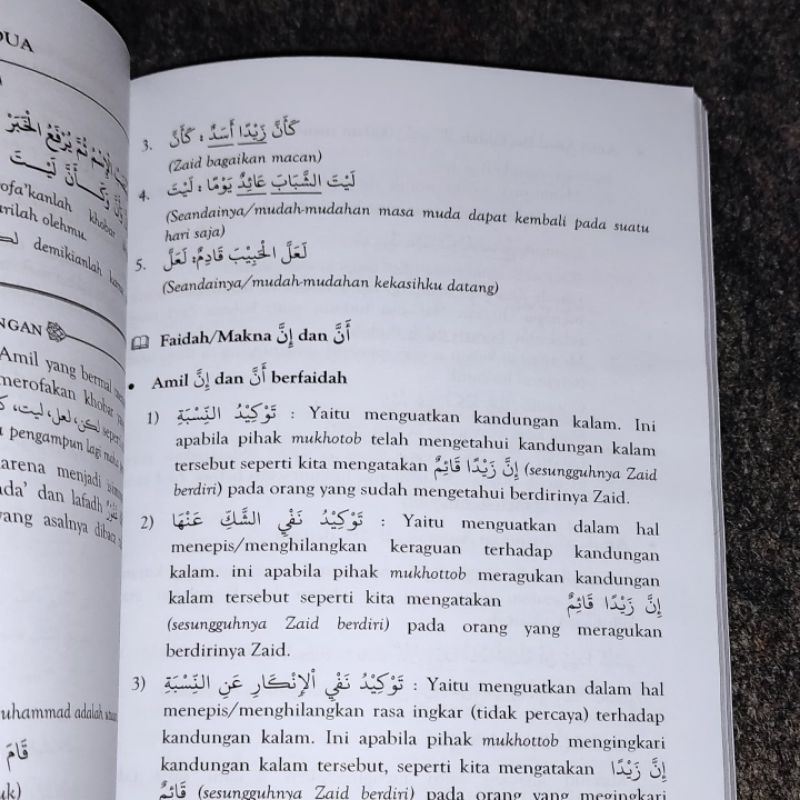 DUA
الْاِسْمُ ثُمَّ يُرْفَعُ الْخَبَرْ
وَكَأَنَّ لَيْتَ
rofa'kanlah khobar
arilah olehmu.
demikianlah
NGAN
Amil yang bermal
merofakan khobar
لكن، لعل، ليت،
pengampun lagi maha
karena menjadi
ada' dan lafadh
yang asalnya dibaca
uhammad adalah
قَامَ
uk)
3. كَأَنَّ : كَأَنَّ زَيْدًا أَسَدٌ
(Zaid bagaikan macan)
4. لَيْتَ : لَيْتَ الشَّبَابَ عَائِدٌ يَوْمًا
(Seandainya/mudah-mudahan masa muda dapat kembali pada suatu
hari saja)
5. لَعَلَّ : لَعَلَّ الْحَبِيْبَ قَادِمٌ
(Seandainya/mudah-mudahan kekasihku datang)
Faidah/Makna إِنَّ dan أَنَّ
• Amil إِنَّ dan أَنَّ berfaidah
1) تَوْكِيْدُ النِّسْبَةِ : Yaitu menguatkan kandungan kalam. Ini
apabila pihak mukhotob telah mengetahui kandungan kalam
tersebut seperti kita mengatakan إِنَّ زَيْدًا قَائِمٌ (sesungguhnya Zaid
berdiri) pada orang yang sudah mengetahui berdirinya Zaid.
2) تَوْكِيْدُ نَفْيِ الشَّكِّ عَنْهَا : Yaitu menguatkan dalam hal
menepis/menghilangkan keraguan terhadap kandungan
kalam. ini apabila pihak mukhottob meragukan kandungan
kalam tersebut seperti kita mengatakan إِنَّ زَيْدًا قَائِمٌ
(sesungguhnya Zaid berdiri) pada orang yang meragukan
berdirinya Zaid.
3) تَوْكِيْدُ نَفْيِ اْلإِنْكَارِ عَنِ النِّسْبَةِ : Yaitu menguatkan dalam hal
menepis/menghilangkan rasa ingkar (tidak percaya) terhadap
kandungan kalam. Ini apabila pihak mukhottob mengingkari
kandungan kalam tersebut, seperti kita mengatakan إِنَّ زَيْدًا
قَائِمٌ (sesungguhnya Zaid berdiri) pada orang yang megingkari